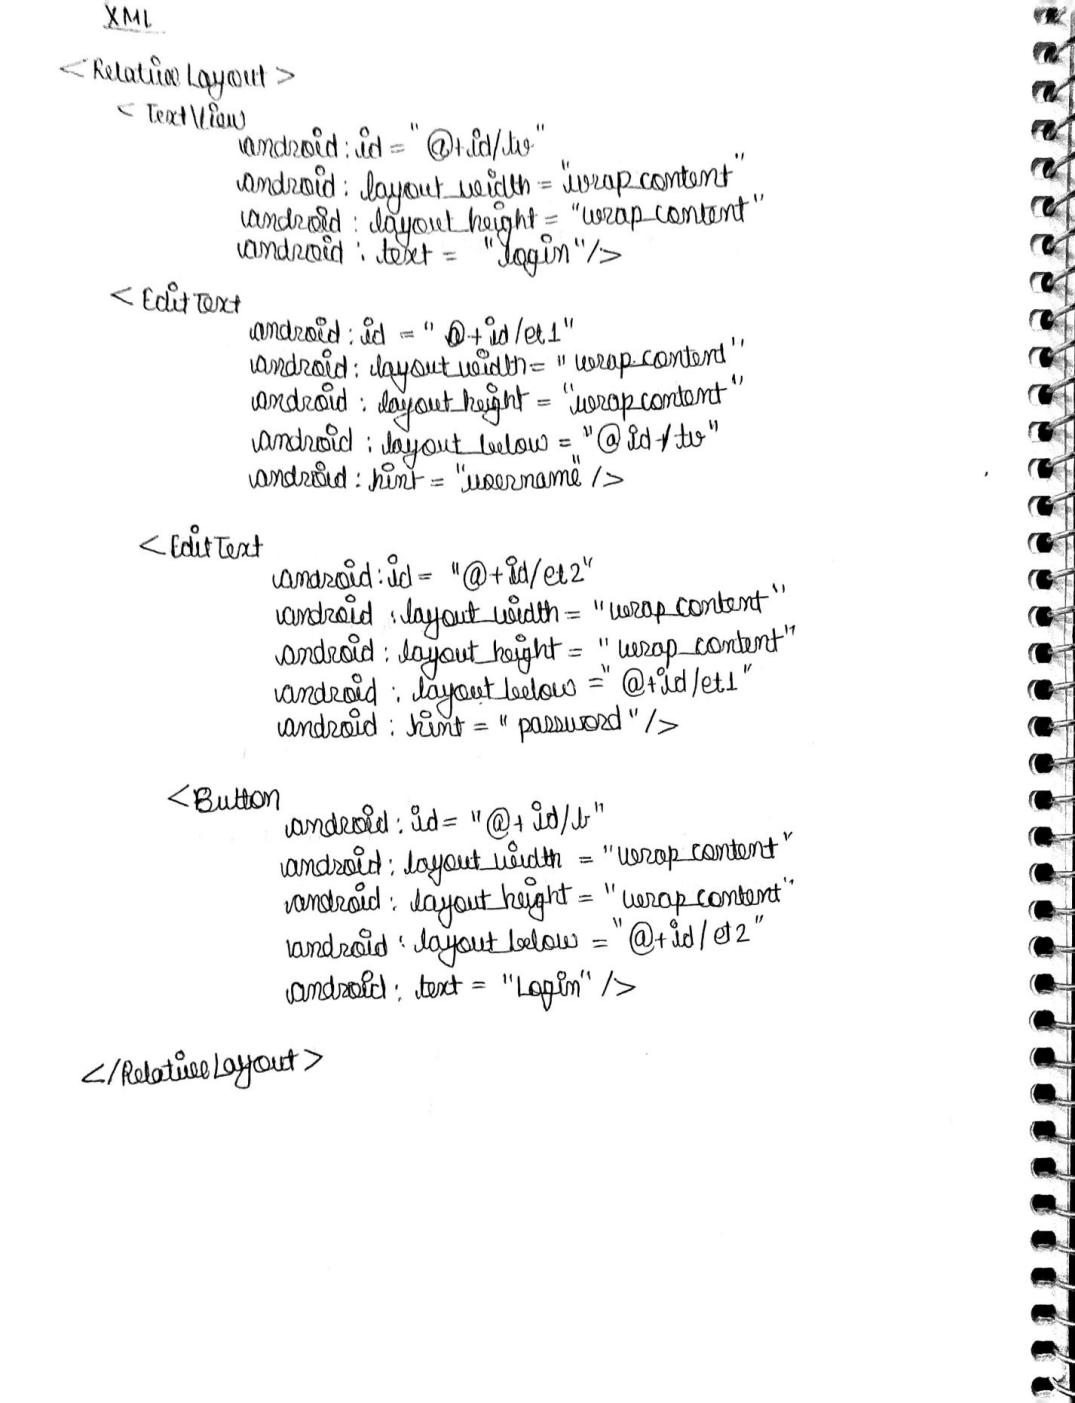 XML
<RelativeLayout>
<TextView
android:id="@+id/tv"
android: layout_width = "wrap content"
android: layout_height = "wrap_content"
android: text = "login"/>
<EditText
android:id = "@+id/et1"
android: layout_width = "wrap_content"
android: layout_height = "wrap content"
android: layout_below = "@id/tv"
android: hint = "username" />
<EditText
android:id = "@+id/et2"
android: layout_width = "wrap_content"
android: layout_height = "wrap_content"
android: layout_below = "@+id/et1"
android: hint = "password"/>
<Button
android: id= "@+id/b"
android: layout_width = "wrap_content"
android: layout_height = "wrap_content"
android: layout_below = "@+id/et2"
android: text = "Login" />
</RelativeLayout>